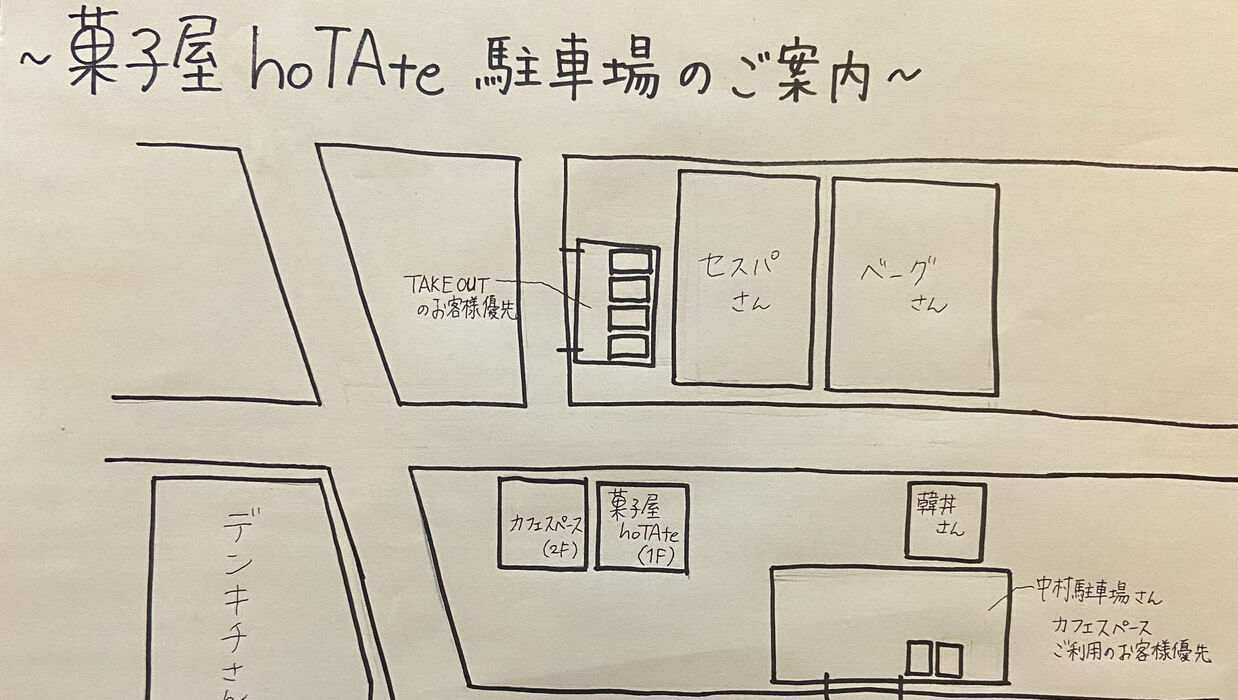 ~菓子屋 hoTAte 駐車場のご案内~
TAKEOUT
のお客様優先
セスパ
さん
ベーグ
さん
カフェスペース
(2F)
菓子屋
hoTAte
(1F)
韓丼
さん
デンキチさん
中村駐車場さん
カフェスペース
ご利用のお客様優先